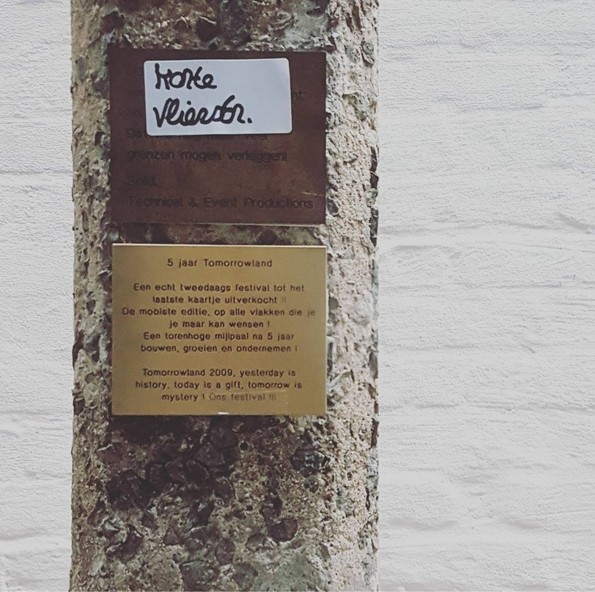 Korte
Vlierstr.
grenzen mogen verleggen!
Solid
Technical & Event Productions
5 jaar Tomorrowland
Een echt tweedaags festival tot het
laatste kaartje uitverkocht !!
De mooiste editie, op alle vlakken die je
je maar kan wensen !
Een torenhoge mijlpaal na 5 jaar
bouwen, groeien en ondernemen !
Tomorrowland 2009, yesterday is
history, today is a gift, tomorrow is
mystery ! Ons festival !!!